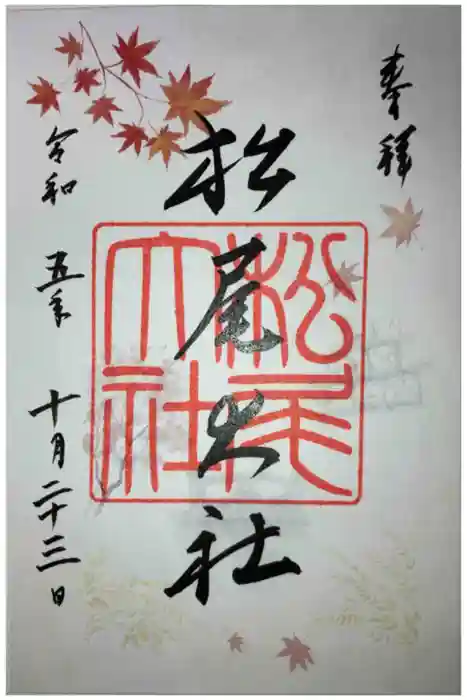 奉拝
松尾大社
松尾
大社
令和五年十月二十三日